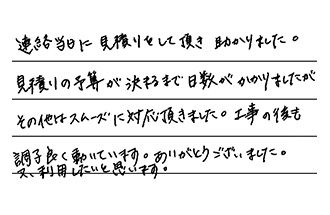 連絡当日に見積りをして頂き助かりました。
見積りの予算が決まるまで日数がかかりましたが
その他はスムーズに対応頂きました。工事の後も
調子良く動いています。ありがとうございました。
又、利用したいと思います。